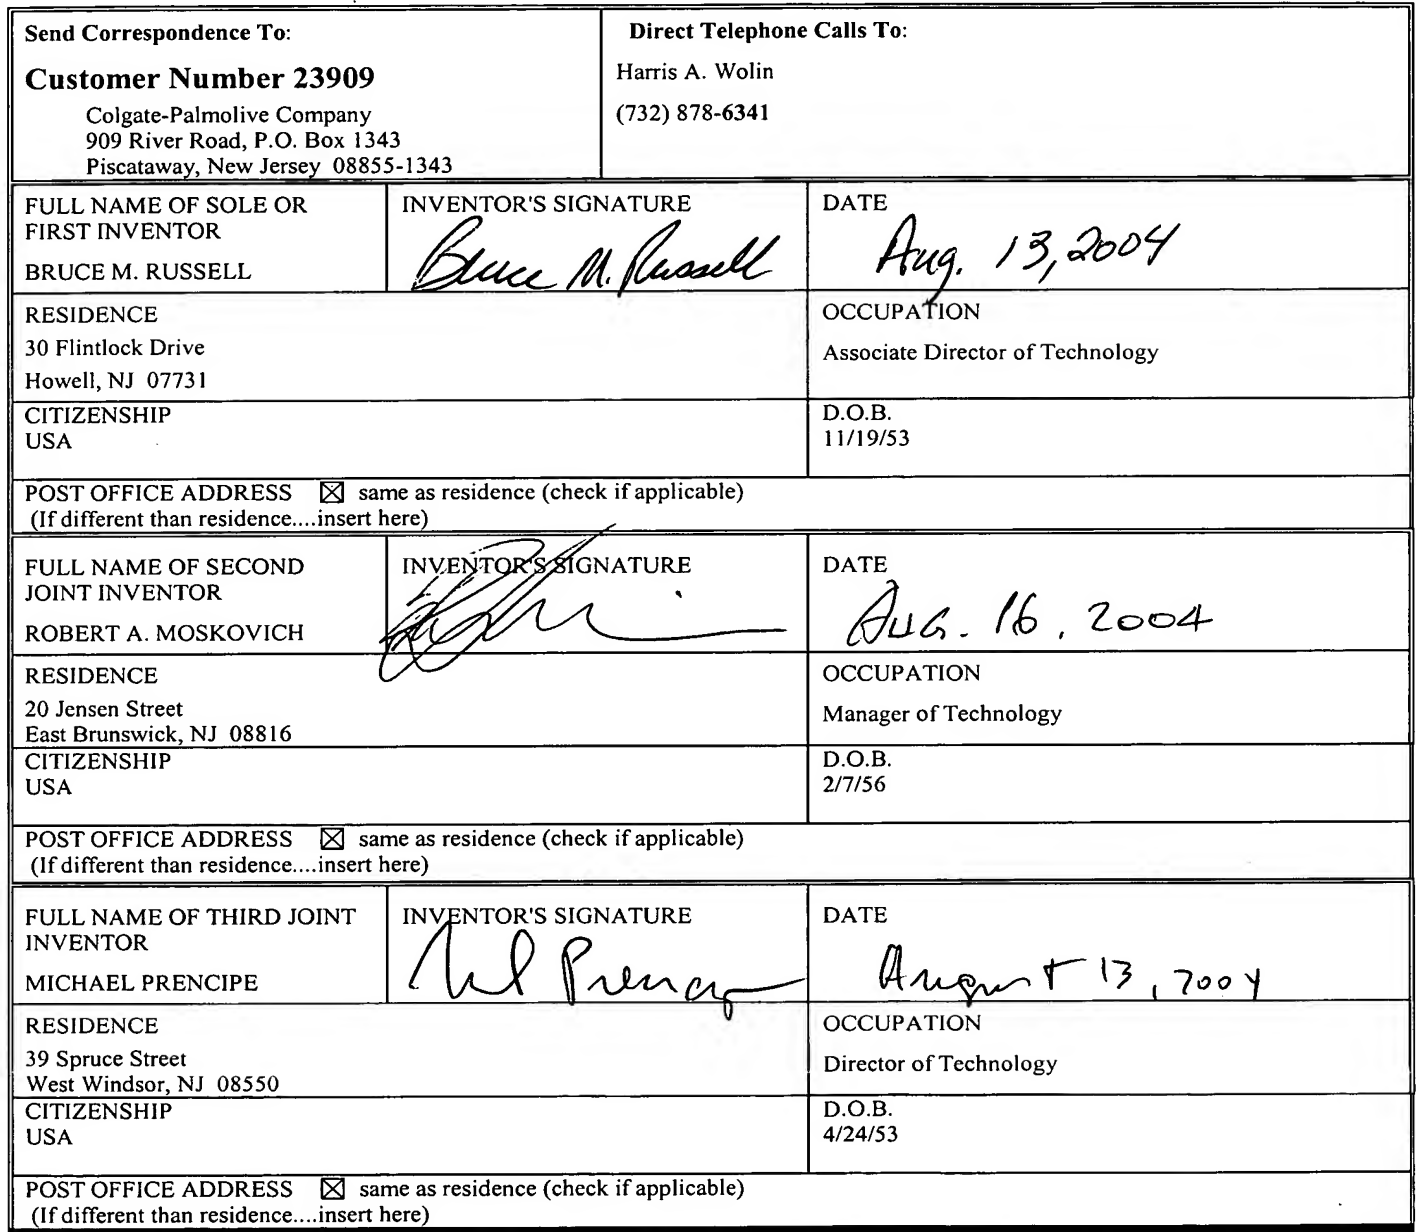 Send Correspondence To:
Customer Number 23909
Colgate-Palmolive Company
909 River Road, P.O. Box 1343
Piscataway, New Jersey 08855-1343
Direct Telephone Calls To:
Harris A. Wolin
(732) 878-6341
FULL NAME OF SOLE OR
FIRST INVENTOR
BRUCE M. RUSSELL
INVENTOR'S SIGNATURE
Bruce M. Russell
DATE
Aug. 13, 2004
RESIDENCE
30 Flintlock Drive
Howell, NJ 07731
OCCUPATION
Associate Director of Technology
CITIZENSHIP
USA
D.O.B.
11/19/53
POST OFFICE ADDRESS ☒ same as residence (check if applicable)
(If different than residence....insert here)
FULL NAME OF SECOND
JOINT INVENTOR
ROBERT A. MOSKOVICH
INVENTOR'S SIGNATURE
DATE
AUG. 16, 2004
RESIDENCE
20 Jensen Street
East Brunswick, NJ 08816
OCCUPATION
Manager of Technology
CITIZENSHIP
USA
D.O.B.
2/7/56
POST OFFICE ADDRESS ☒ same as residence (check if applicable)
(If different than residence....insert here)
FULL NAME OF THIRD JOINT
INVENTOR
MICHAEL PRENCIPE
INVENTOR'S SIGNATURE
DATE
August 13, 2004
RESIDENCE
39 Spruce Street
West Windsor, NJ 08550
OCCUPATION
Director of Technology
CITIZENSHIP
USA
D.O.B.
4/24/53
POST OFFICE ADDRESS ☒ same as residence (check if applicable)
(If different than residence....insert here)